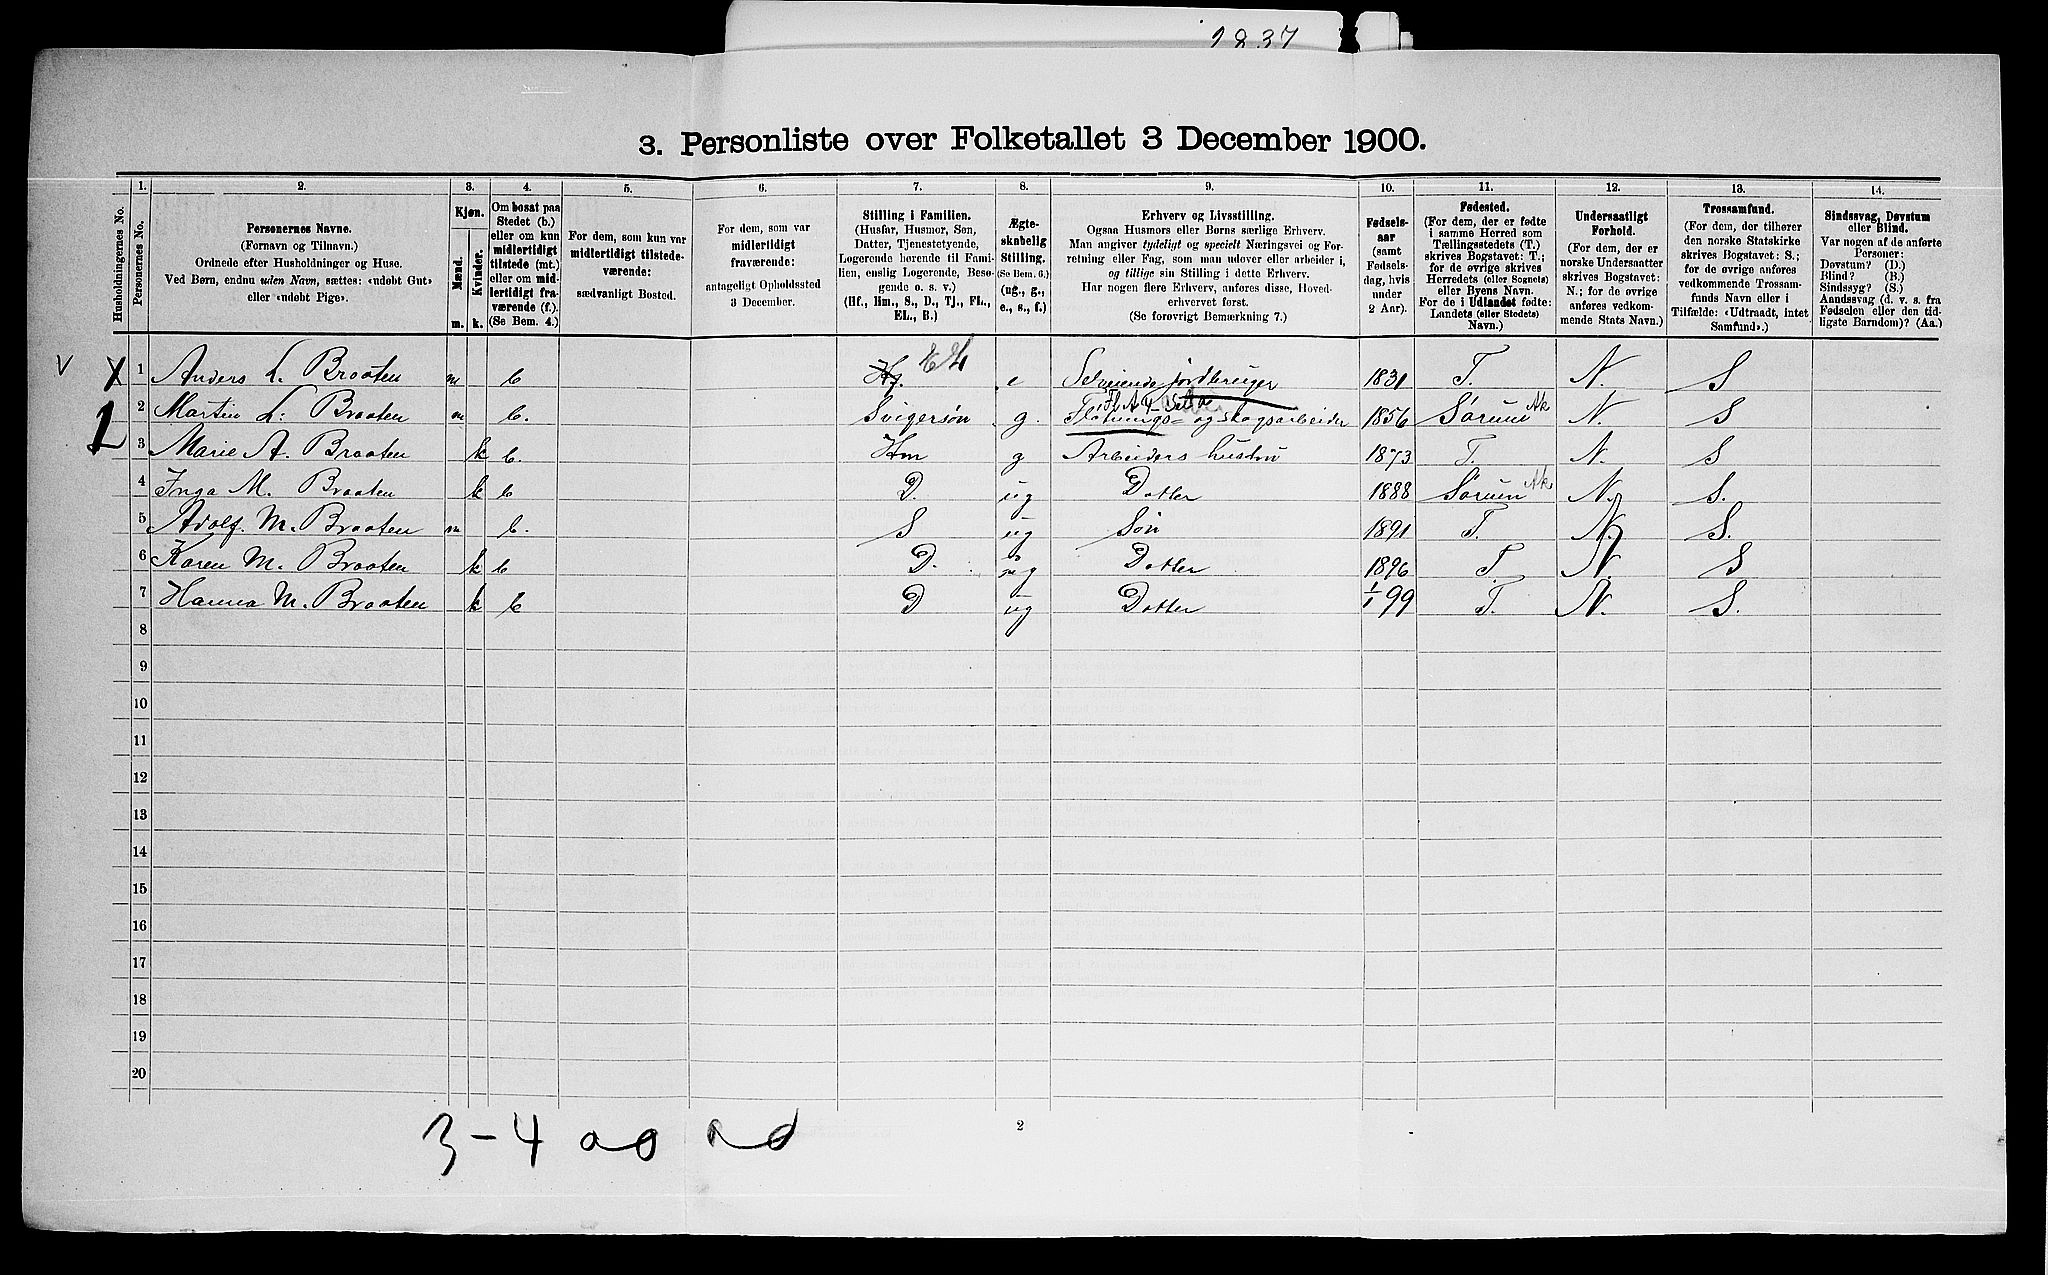 1837
3. Personliste over Folketallet 3 December 1900.
Husholdningernes No.
1. Personernes No.
2. Personernes Navne.
(Fornavn og Tilnavn.)
Ordnede efter Husholdninger og Huse.
Ved Børn, endnu uden Navn, sættes: «udøbt Gut»
eller «udøbt Pige».
3. Kjøn.
Mænd. m.
Kvinder. k.
4. Om bosat paa
Stedet (b.)
eller om kun
midlertidigt
tilstede (mt.)
eller om mid-
lertidigt fra-
værende (f.).
(Se Bem. 4.)
5. For dem, som kun var
midlertidigt tilstede-
værende:
sædvanligt Bosted.
6. For dem, som var
midlertidigt
fraværende:
antageligt Opholdssted
3 December.
7. Stilling i Familien.
(Husfar, Husmor, Søn,
Datter, Tjenestetyende,
Logerende hørende til Fami-
lien, enslig Logerende, Besø-
gende o. s. v.)
(Hf., Hm., S., D., Tj., FL.,
EL., B.)
8. Ægte-
skabelig
Stilling.
(Se Bem. 6.)
(ug., g.,
e., s., f.)
9. Erhverv og Livsstilling.
Ogsaa Husmors eller Børns særlige Erhverv.
Man angiver tydeligt og specielt Næringsvei og For-
retning eller Fag, som man udover eller arbeider i,
og tillige sin Stilling i dette Erhverv.
Har nogen flere Erhverv, anføres disse, Hoved-
erhvervet først.
(Se forøvrigt Bemerkning 7.)
10. Fødsels-
aar
(samt
Fødsels-
dag, hvis
under
2 Aar).
11. Fødested.
(For dem, der er fødte
i samme Herred som
Tællingsstedets (T.)
skrives Bogstavet: T.;
for de øvrige skrives
Herredets (eller Sognets)
eller Byens Navn.
For de i Udlandet fødte:
Landets (eller Stedets)
Navn.)
12. Undersaatligt
Forhold.
(For dem, der er
norske Undersaatter
skrives Bogstavet:
N.; for de øvrige
anføres vedkom-
mende Stats Navn.)
13. Trossamfund.
(For dem, der tilhører
den norske Statskirke
skrives Bogstavet: S.;
for de øvrige anføres
vedkommende Trossam-
funds Navn eller i
Tilfælde: «Udtraadt, intet
Samfund».)
14. Sindssvag, Døvstum
eller Blind.
Var nogen af de anførte
Personer:
Døvstum? (D.)
Blind? (B.)
Sindssyg? (S.)
Aandssvag (d. v. s. fra
Fødselen eller den tid-
ligste Barndom)? (Aa.)
v X 1 Anders L. Braaten m b Hf. EL e Selveiende jordbruger 1831 T. N. S
1 2 Martin L. Braaten m b. Svigersøn g. Fløtnings- og skogsarbeider 1856 Sørum Ak N. S
3 Marie A. Braaten k b. Hm g Arbeiders hustru 1873 T. N. S
4 Inga M. Braaten k b D. ug Datter 1888 Sørum Ak N. S.
5 Adolf. M. Braaten m b. S ug Søn 1891 T. N. S.
6 Karen M. Braaten k b D. ug Datter 1896 T. N. S
7 Hanna M. Braaten k b D ug Datter 1/1 99 T. N. S.
8
9
10
11
12
13
14
15
16
17
18
19
20
3-4
2